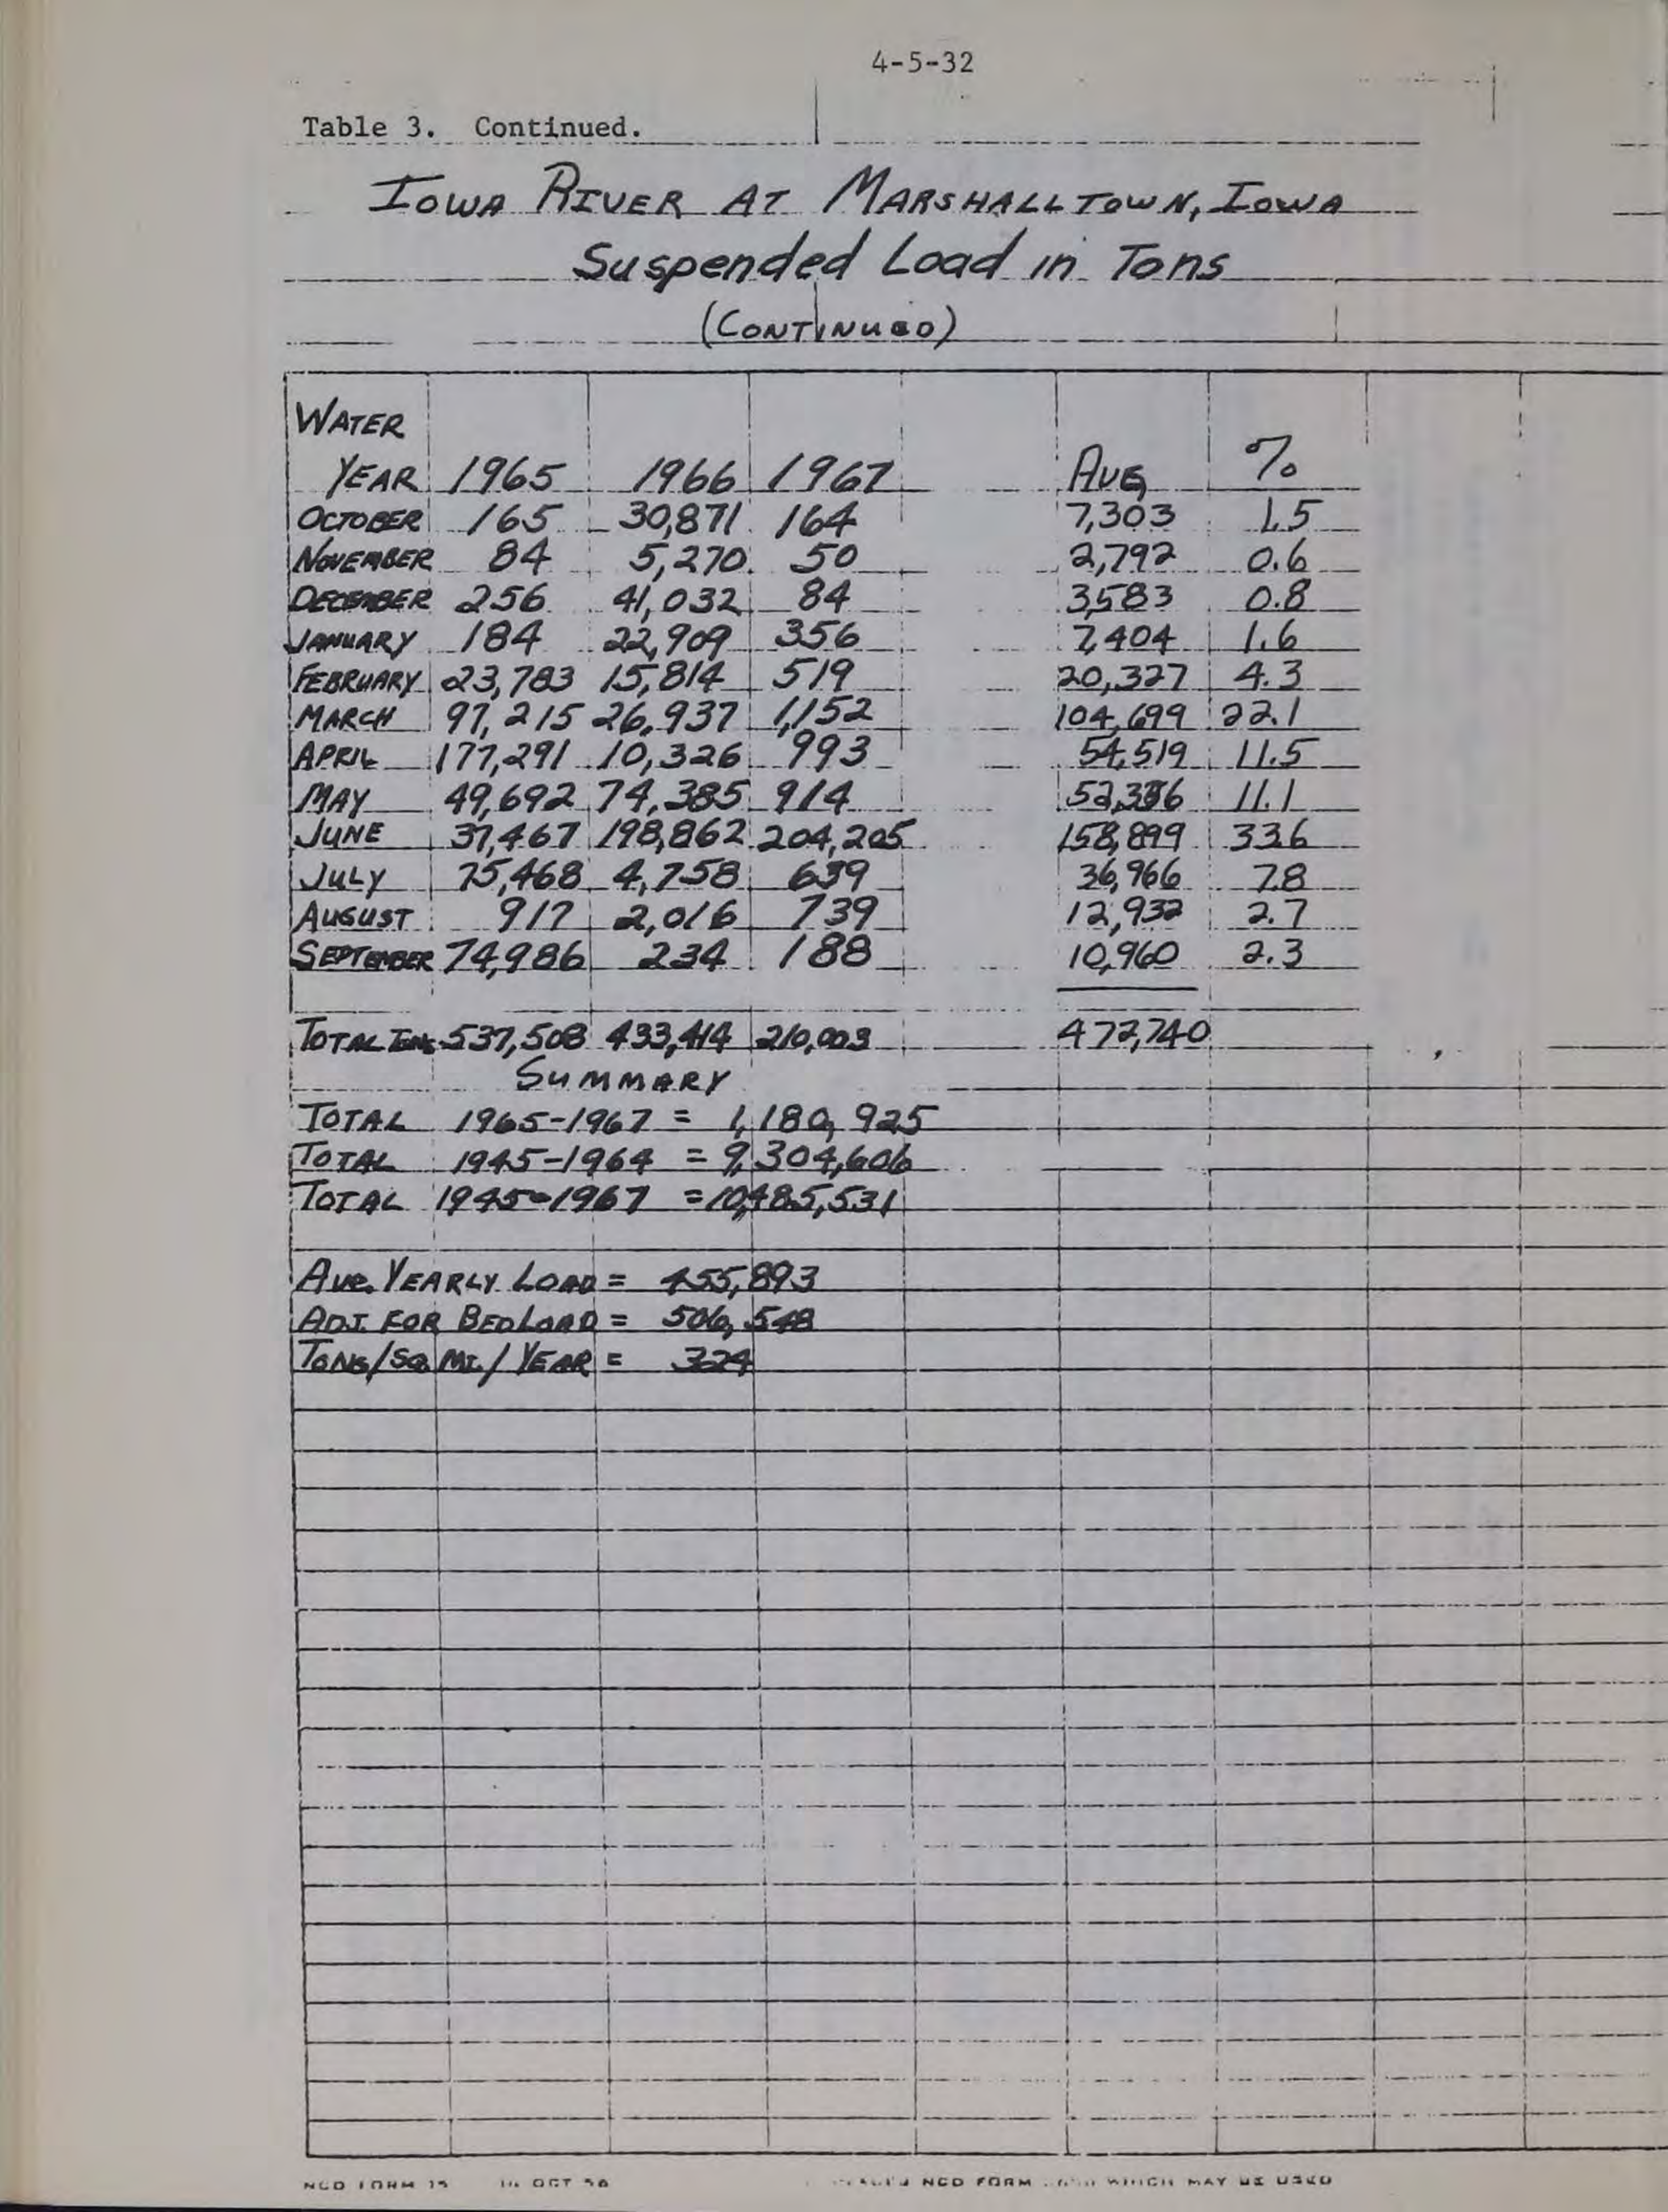 4-5-32
Table 3. Continued.
IOWA RIVER AT MARSHALLTOWN, IOWA
Suspended Load in Tons
(CONTINUED)
WATER
YEAR 1965 1966 1967 AVG %
OCTOBER 165 30,871 164 7,303 1.5
NOVEMBER 84 5,270 50 2,792 0.6
DECEMBER 256 41,032 84 3,583 0.8
JANUARY 184 22,909 356 7,404 1.6
FEBRUARY 23,783 15,814 519 20,327 4.3
MARCH 97,215 26,937 1,152 104,699 22.1
APRIL 177,291 10,326 993 54,519 11.5
MAY 49,692 74,385 914 11.1
JUNE 37,467 198,862 204,205 158,899 33.6
JULY 75,468 4,758 639 36,966 7.8
AUGUST 917 2,016 739 12,932 2.7
SEPTEMBER 74,986 234 188 10,960 2.3
TOTAL TONS 537,508 433,414 210,003 472,740
SUMMARY
TOTAL 1965-1967 = 1,180,925
TOTAL 1945-1964 = 9,304,606
TOTAL 1945-1967 = 10,485,531
AVE. YEARLY LOAD = 455,893
ADJ FOR BEDLOAD = 506,548
TONS/SQ. MI./YEAR = 324
NCD FORM 15 OCT 58 NCD FORM WHICH MAY BE USED